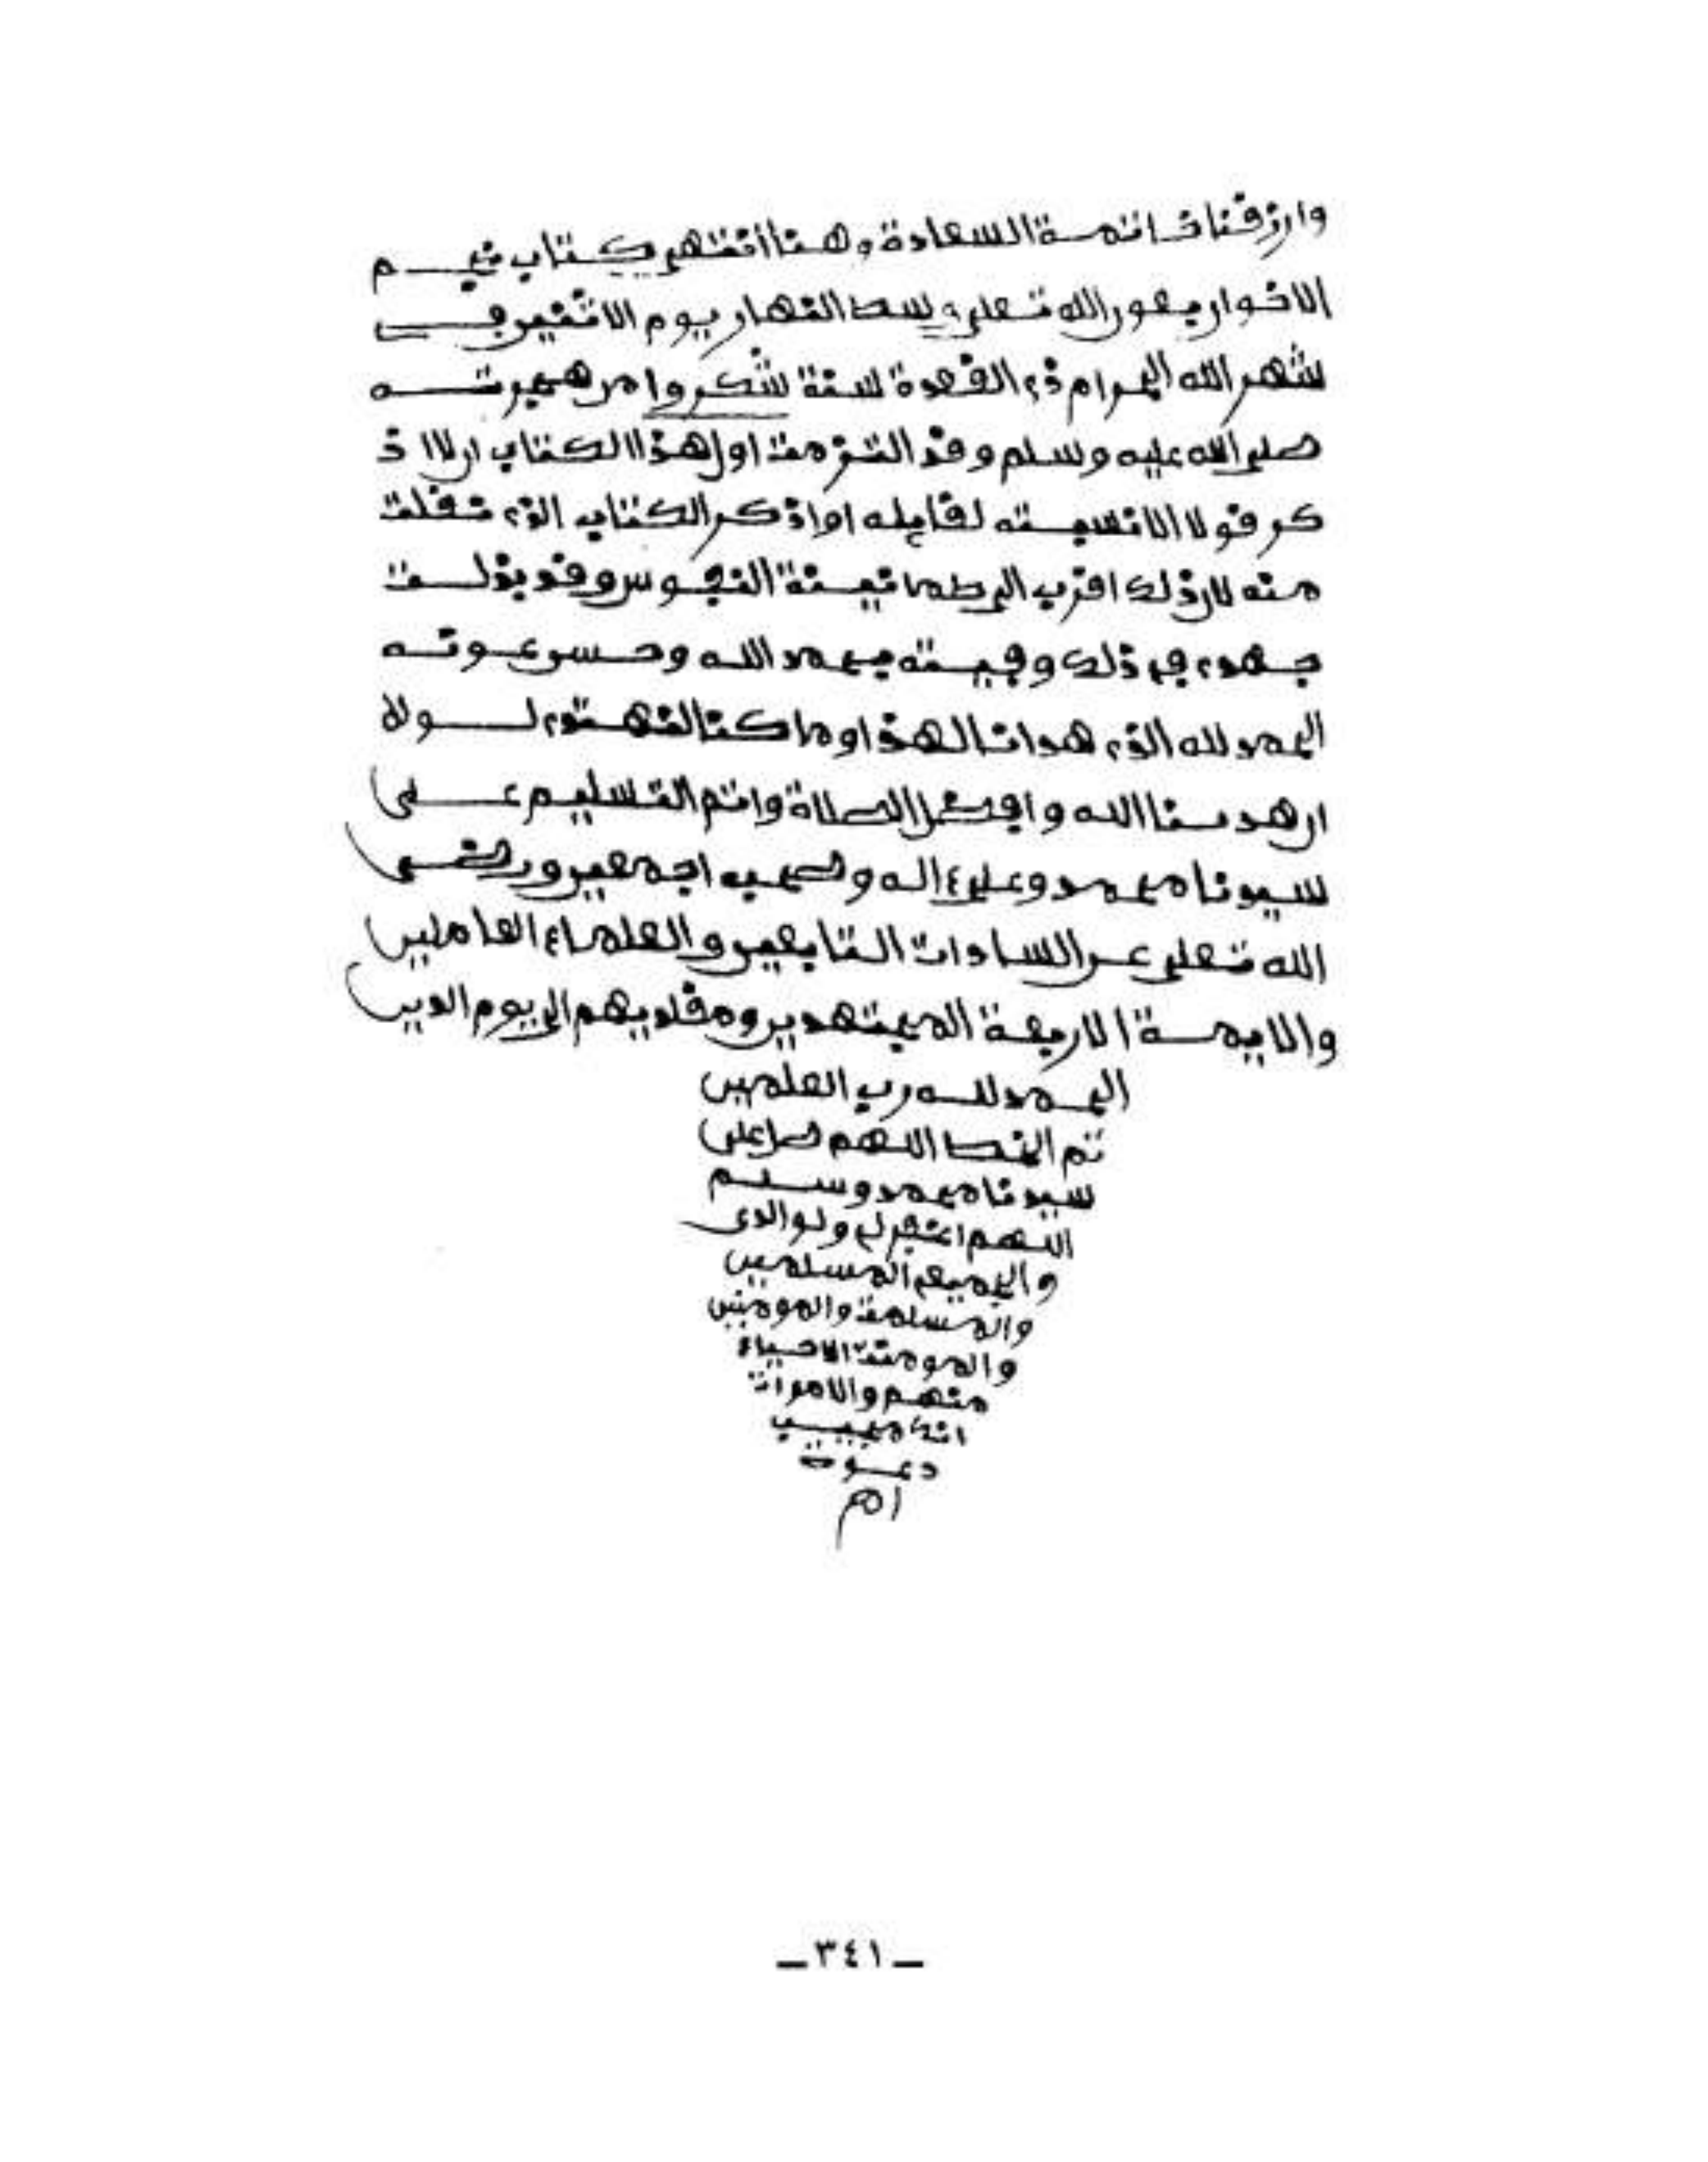 وارزقنا خاتمة السعادة وهنا انتهى كتاب نجم
الاخوان بعون الله تعلى وسط النهار يوم الاثنين في
شهر الله الحرام ذي القعدة سنة شكروا من هجرته
صلى الله عليه وسلم وقد التزمت اول هذا الكتاب ان لا اذ
كر قولا الا نسبته لقايله او اذكر الكتاب الذي نقلت
منه لان ذلك اقرب الى طمانينة النفوس وقد بذلت
جهدي في ذلك وفيته بحمد الله وحسن عونه
الحمد لله الذي هدانا لهذا وما كنا لنهتدي لولا
ان هدينا الله وافضل الصلاة واتم التسليم على
سيدنا محمد وعلى ءاله وصحبه اجمعين ورضي
الله تعلى عن السادات التابعين والعلماء العاملين
والايمة الاربعة المجتهدين ومقلديهم الى يوم الدين
الحمد لله رب العلمين
تم الخط اللهم صل على
سيدنا محمد وسلم
اللهم اغفر لي ولوالدي
والجميع المسلمين
والمسلمت والمومنين
والمومنت الاحياء
منهم والاموات
انك مجيب
دعوت
ام
ـ ٣٤١ ـ